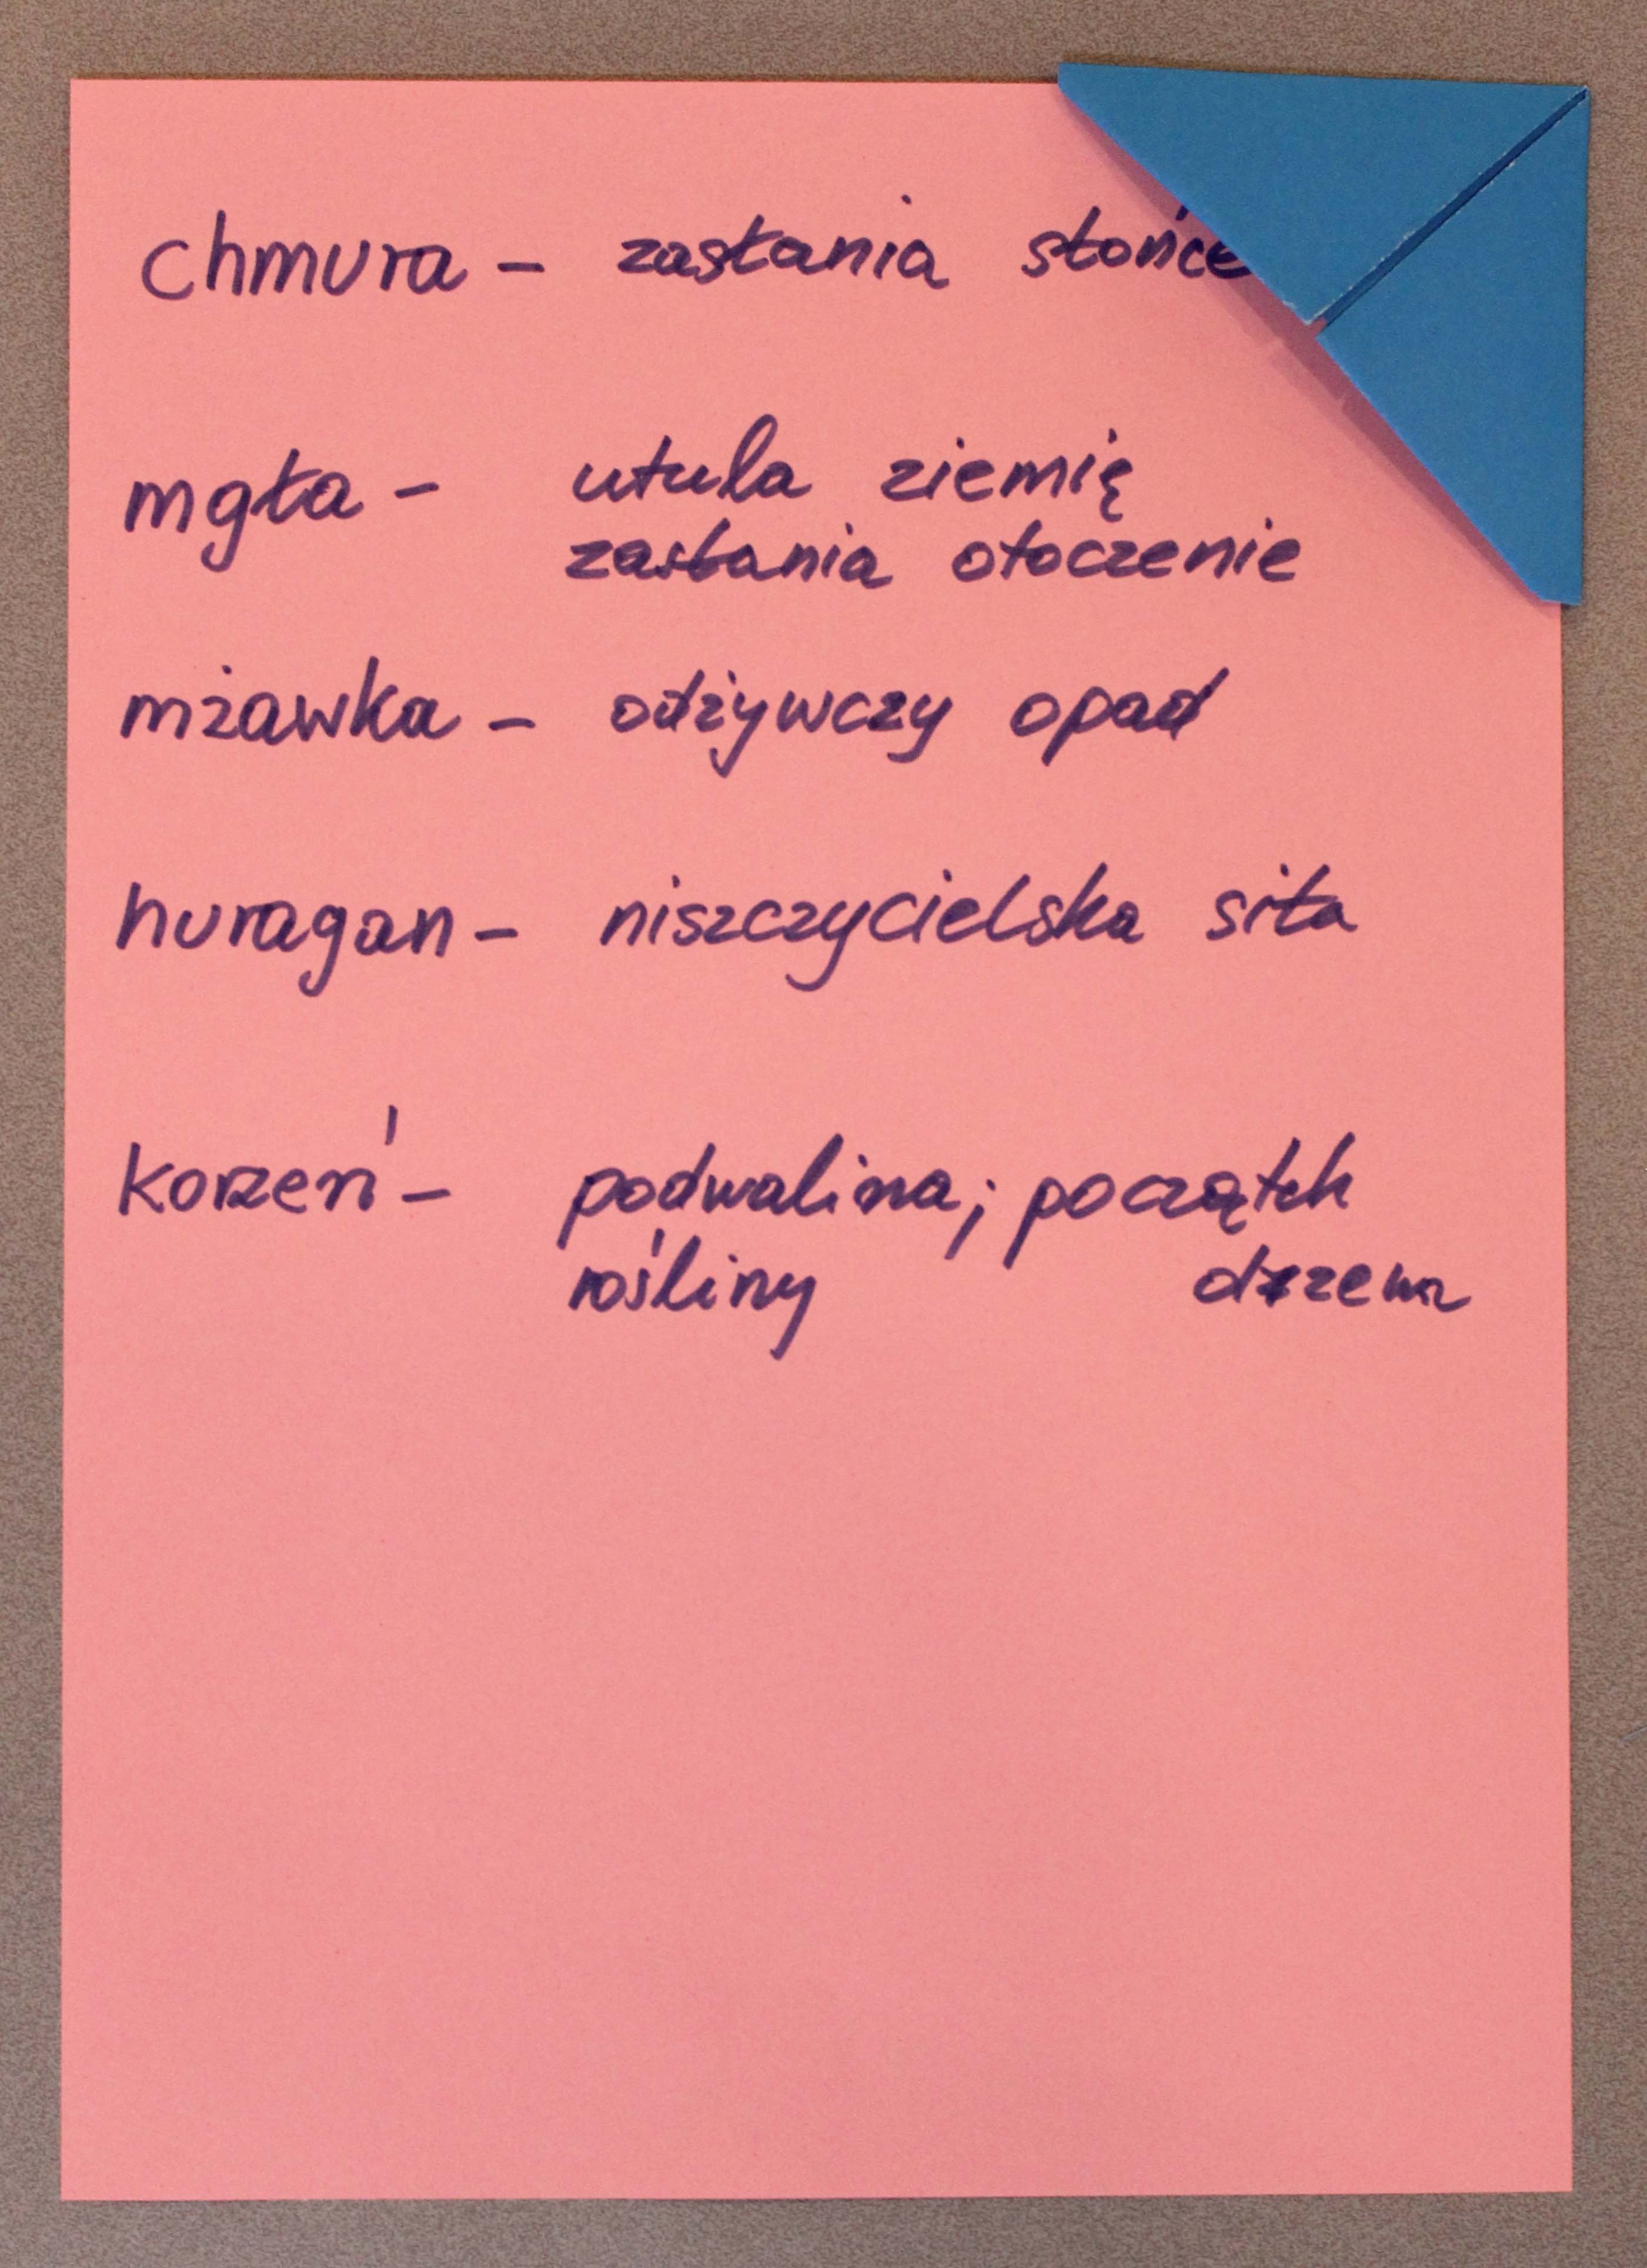 chmura – zasłania słońce
mgła – utula ziemię
zasłania otoczenie
mżawka – odżywczy opad
huragan – niszczycielska siła
korzeń – podwalina; początek
rośliny drzewa